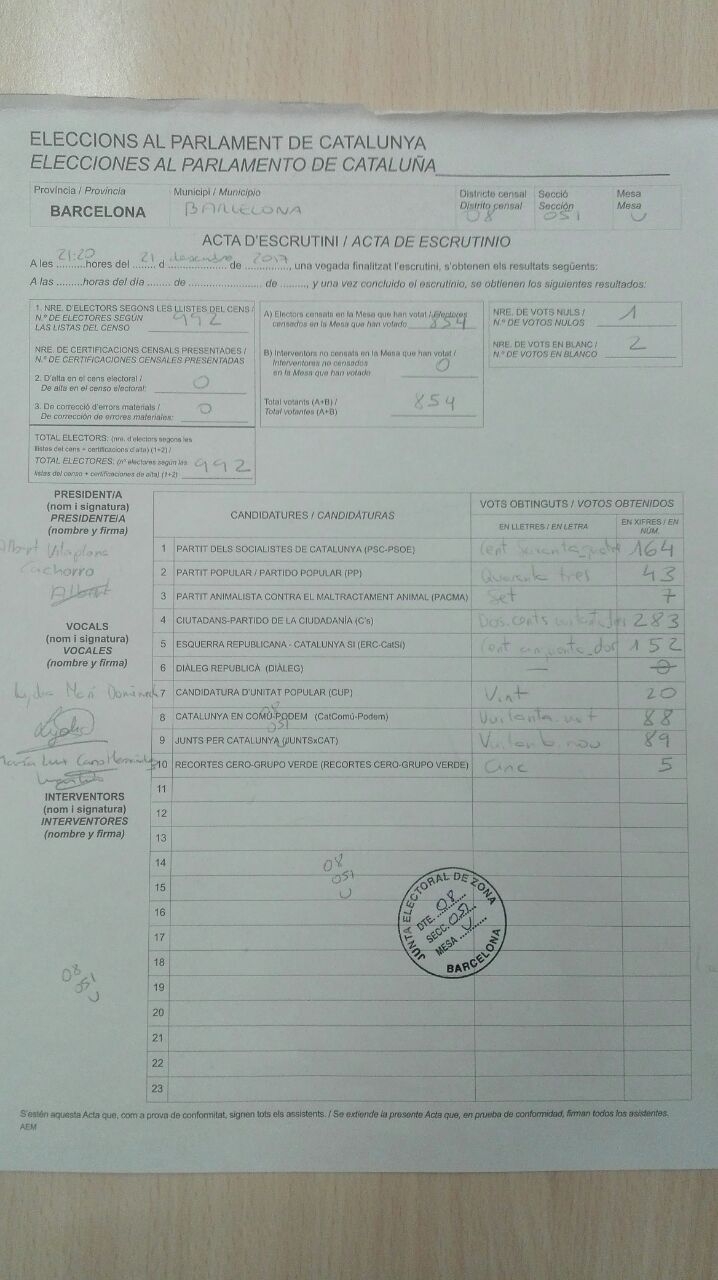 ELECCIONS AL PARLAMENT DE CATALUNYA
ELECCIONES AL PARLAMENTO DE CATALUÑA
Província / Provincia
BARCELONA
Municipi / Municipio
BARCELONA
Districte censal
Distrito censal
08
Secció
Sección
051
Mesa
Mesa
U
ACTA D'ESCRUTINI / ACTA DE ESCRUTINIO
A les 21:20 hores del 21 d desembre de 2017, una vegada finalitzat l'escrutini, s'obtenen els resultats següents:
A las ......... horas del día ....... de ................ de ........, y una vez concluido el escrutinio, se obtienen los siguientes resultados:
1. NRE. D'ELECTORS SEGONS LES LLISTES DEL CENS /
N.º DE ELECTORES SEGÚN
LAS LISTAS DEL CENSO
992
NRE. DE CERTIFICACIONS CENSALS PRESENTADES /
N.º DE CERTIFICACIONES CENSALES PRESENTADAS
2. D'alta en el cens electoral /
De alta en el censo electoral:
0
3. De correcció d'errors materials /
De corrección de errores materiales:
0
TOTAL ELECTORS: (nre. d'electors segons les
llistes del cens + certificacions d'alta) (1+2) /
TOTAL ELECTORES: (nº electores según las
listas del censo + certificaciones de alta) (1+2)
992
A) Electors censats en la Mesa que han votat / Electores
censados en la Mesa que han votado
854
B) Interventors no censats en la Mesa que han votat /
Interventores no censados
en la Mesa que han votado
0
Total votants (A+B) /
Total votantes (A+B)
854
NRE. DE VOTS NULS /
N.º DE VOTOS NULOS
1
NRE. DE VOTS EN BLANC /
N.º DE VOTOS EN BLANCO
2
PRESIDENT/A
(nom i signatura)
PRESIDENTE/A
(nombre y firma)
Vilaplana
Cachorro
Albert
VOCALS
(nom i signatura)
VOCALES
(nombre y firma)
Lydia
INTERVENTORS
(nom i signatura)
INTERVENTORES
(nombre y firma)
08
051
U
CANDIDATURES / CANDIDATURAS
VOTS OBTINGUTS / VOTOS OBTENIDOS
EN LLETRES / EN LETRA
EN XIFRES / EN NÚM.
1 PARTIT DELS SOCIALISTES DE CATALUNYA (PSC-PSOE) Cent seixanta quatre 164
2 PARTIT POPULAR / PARTIDO POPULAR (PP) Quaranta tres 43
3 PARTIT ANIMALISTA CONTRA EL MALTRACTAMENT ANIMAL (PACMA) Set 7
4 CIUTADANS-PARTIDO DE LA CIUDADANÍA (C's) 283
5 ESQUERRA REPUBLICANA - CATALUNYA SI (ERC-CatSí) Cent cinquanta dos 152
6 DIÀLEG REPUBLICÀ (DIÀLEG) — 0
7 CANDIDATURA D'UNITAT POPULAR (CUP) Vint 20
8 CATALUNYA EN COMÚ-PODEM (CatComú-Podem) Vuitanta vuit 88
9 JUNTS PER CATALUNYA (JUNTSxCAT) Vuitanta nou 89
10 RECORTES CERO-GRUPO VERDE (RECORTES CERO-GRUPO VERDE) Cinc 5
08
051
U
11
12
13
14
15
16
17
18
19
20
21
22
23
08
051
U
JUNTA ELECTORAL DE ZONA
DTE. 08
SECC. 051
MESA U
BARCELONA
S'estén aquesta Acta que, com a prova de conformitat, signen tots els assistents. / Se extiende la presente Acta que, en prueba de conformidad, firman todos los asistentes.
AEM